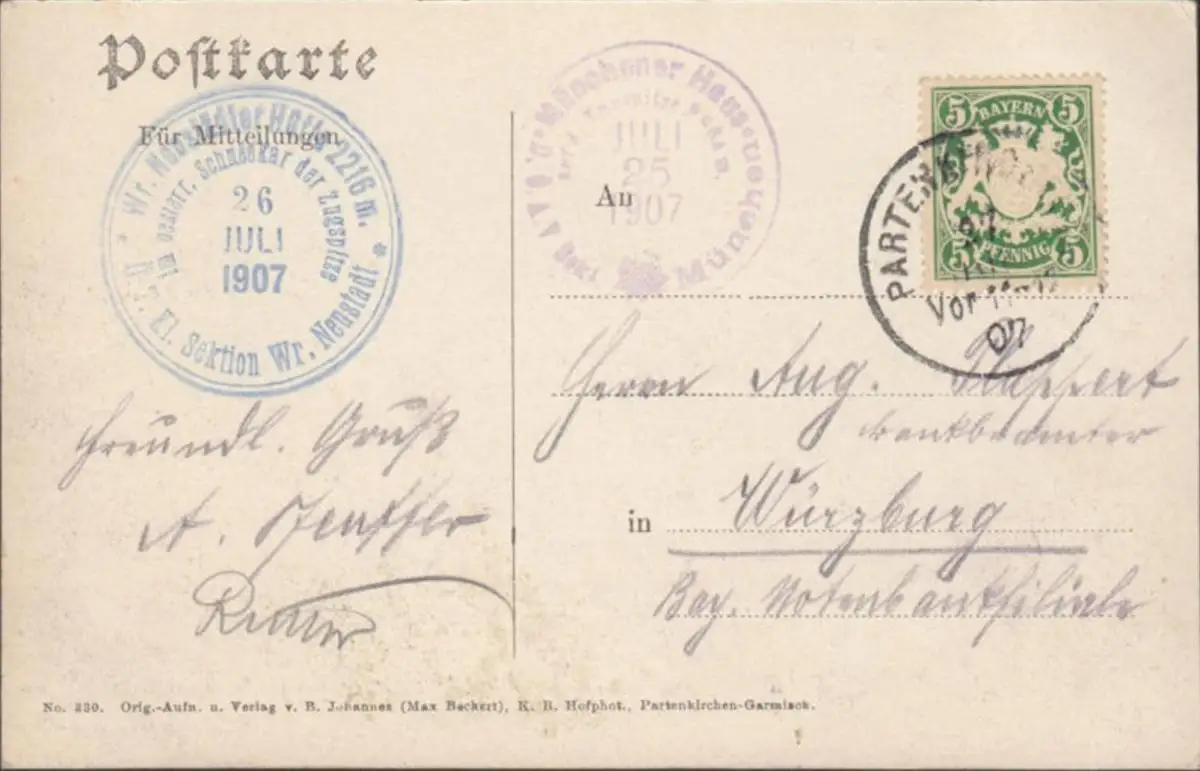 Postkarte
Für Mitteilungen
Wr. Neustädter Hütte 2216 m.
im oesterr. Schneekar der Zugspitze
26
JULI
1907
Oe. T. Kl. Sektion Wr. Neustadt
Münchener Haus
JULI
25
1907
München
An
5 BAYERN 5
5 PFENNIG 5
PARTENKIRCHEN
Vor
07
Herrn Aug.
Bankbeamter
in Würzburg
Bay. Notenbankfiliale
Freundl. Gruß
A.
No. 330. Orig.-Aufn. u. Verlag v. B. Johannes (Max Beckert), K. B. Hofphot., Partenkirchen-Garmisch.